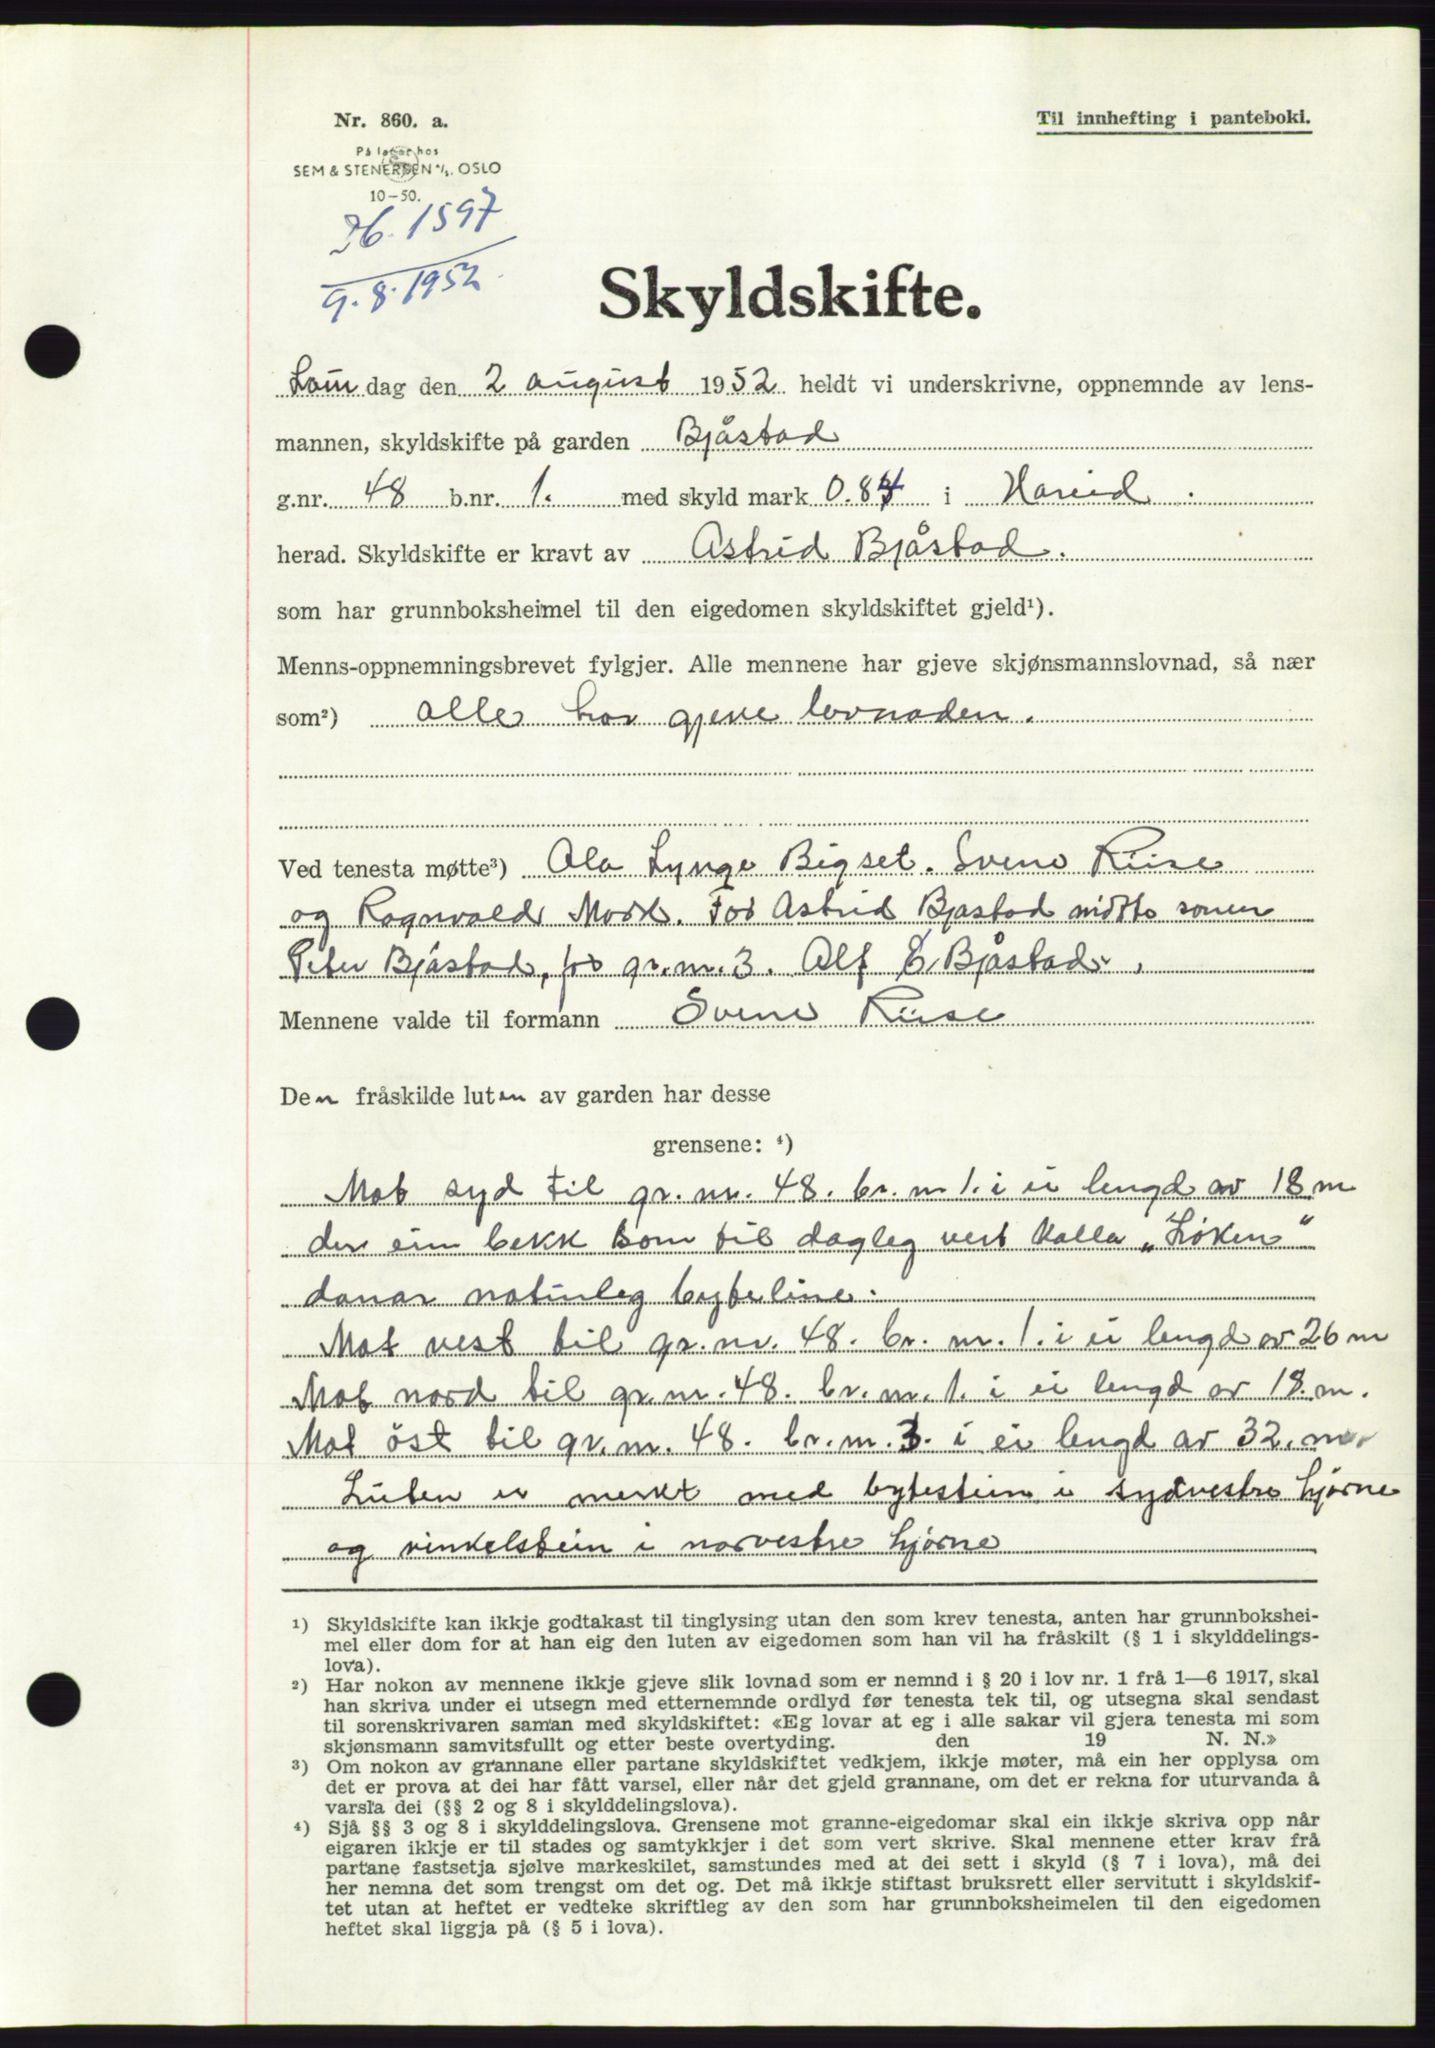 Nr. 860. a.
Til innhefting i panteboki.
På lager hos
SEM & STENERSEN A/S, OSLO
10-50.
Db. 1597
9.8.1952
Skyldskifte.
Laur dag den 2 august 1952 heldt vi underskrivne, oppnemnde av lens-
mannen, skyldskifte på garden Bjåstad
g.nr. 48 b.nr. 1. med skyld mark 0.84 i Hareid.
herad. Skyldskifte er kravt av Astrid Bjåstad.
som har grunnboksheimel til den eigedomen skyldskiftet gjeld¹).
Menns-oppnemningsbrevet fylgjer. Alle mennene har gjeve skjønsmannslovnad, så nær
som²) alle har gjeve lovnaden.
Ved tenesta møtte³) Ola Lynge Bigset. Svene Riise
og Ragnvald Mork. For Astrid Bjåstad møtte sonen
Peter Bjåstad, for gr.nr. 3. Alf E Bjåstad.
Mennene valde til formann Svene Riise
Den fråskilde luten av garden har desse
grensene: ⁴)
Mot syd til gr. nr. 48. br. nr 1. i ei lengd av 18 m
der ein bekk som til dagleg vert kalla „Løken"
danar naturleg byteline.
Mot vest til gr. nr. 48. br. nr. 1. i ei lengd av 26 m
Mot nord til gr. nr. 48. br. nr. 1. i ei lengd av 18. m.
Mot öst til gr. nr. 48. br. nr. 3. i ei lengd av 32. m.
Luten er merkt med bytestein i sydvestre hjørne
og vinkelstein i norvestre hjørne
¹) Skyldskifte kan ikkje godtakast til tinglysing utan den som krev tenesta, anten har grunnbokshei-
mel eller dom for at han eig den luten av eigedomen som han vil ha fråskilt (§ 1 i skylddelings-
lova).
²) Har nokon av mennene ikkje gjeve slik lovnad som er nemnd i § 20 i lov nr. 1 frå 1—6 1917, skal
han skriva under ei utsegn med etternemnde ordlyd før tenesta tek til, og utsegna skal sendast
til sorenskrivaren saman med skyldskiftet: «Eg lovar at eg i alle sakar vil gjera tenesta mi som
skjønsmann samvitsfullt og etter beste overtyding. den 19 N. N.»
³) Om nokon av grannane eller partane skyldskiftet vedkjem, ikkje møter, må ein her opplysa om
det er prova at dei har fått varsel, eller når det gjeld grannane, om det er rekna for uturvanda å
varsla dei (§§ 2 og 8 i skylddelingslova).
⁴) Sjå §§ 3 og 8 i skylddelingslova. Grensene mot granne-eigedomar skal ein ikkje skriva opp når
eigaren ikkje er til stades og samtykkjer i det som vert skrive. Skal mennene etter krav frå
partane fastsetja sjølve markeskilet, samstundes med at dei sett i skyld (§ 7 i lova), må dei
her nemna det som trengst om det og. Det må ikkje stiftast bruksrett eller servitutt i skyldskif-
tet utan at heftet er vedteke skriftleg av den som har grunnboksheimelen til den eigedomen
heftet skal liggja på (§ 5 i lova).